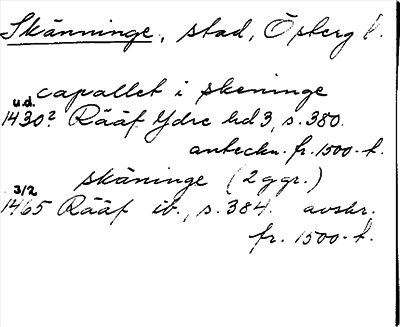 Skänninge, stad, Österg l.
capallet i skeninge
u.d.
1430? Rääf Ydre hd 3, s. 380.
anteckn. fr. 1500-t.
skäninge (2 ggr.)
3/2
1465 Rääf ib., s. 384. avskr.
fr. 1500-t.